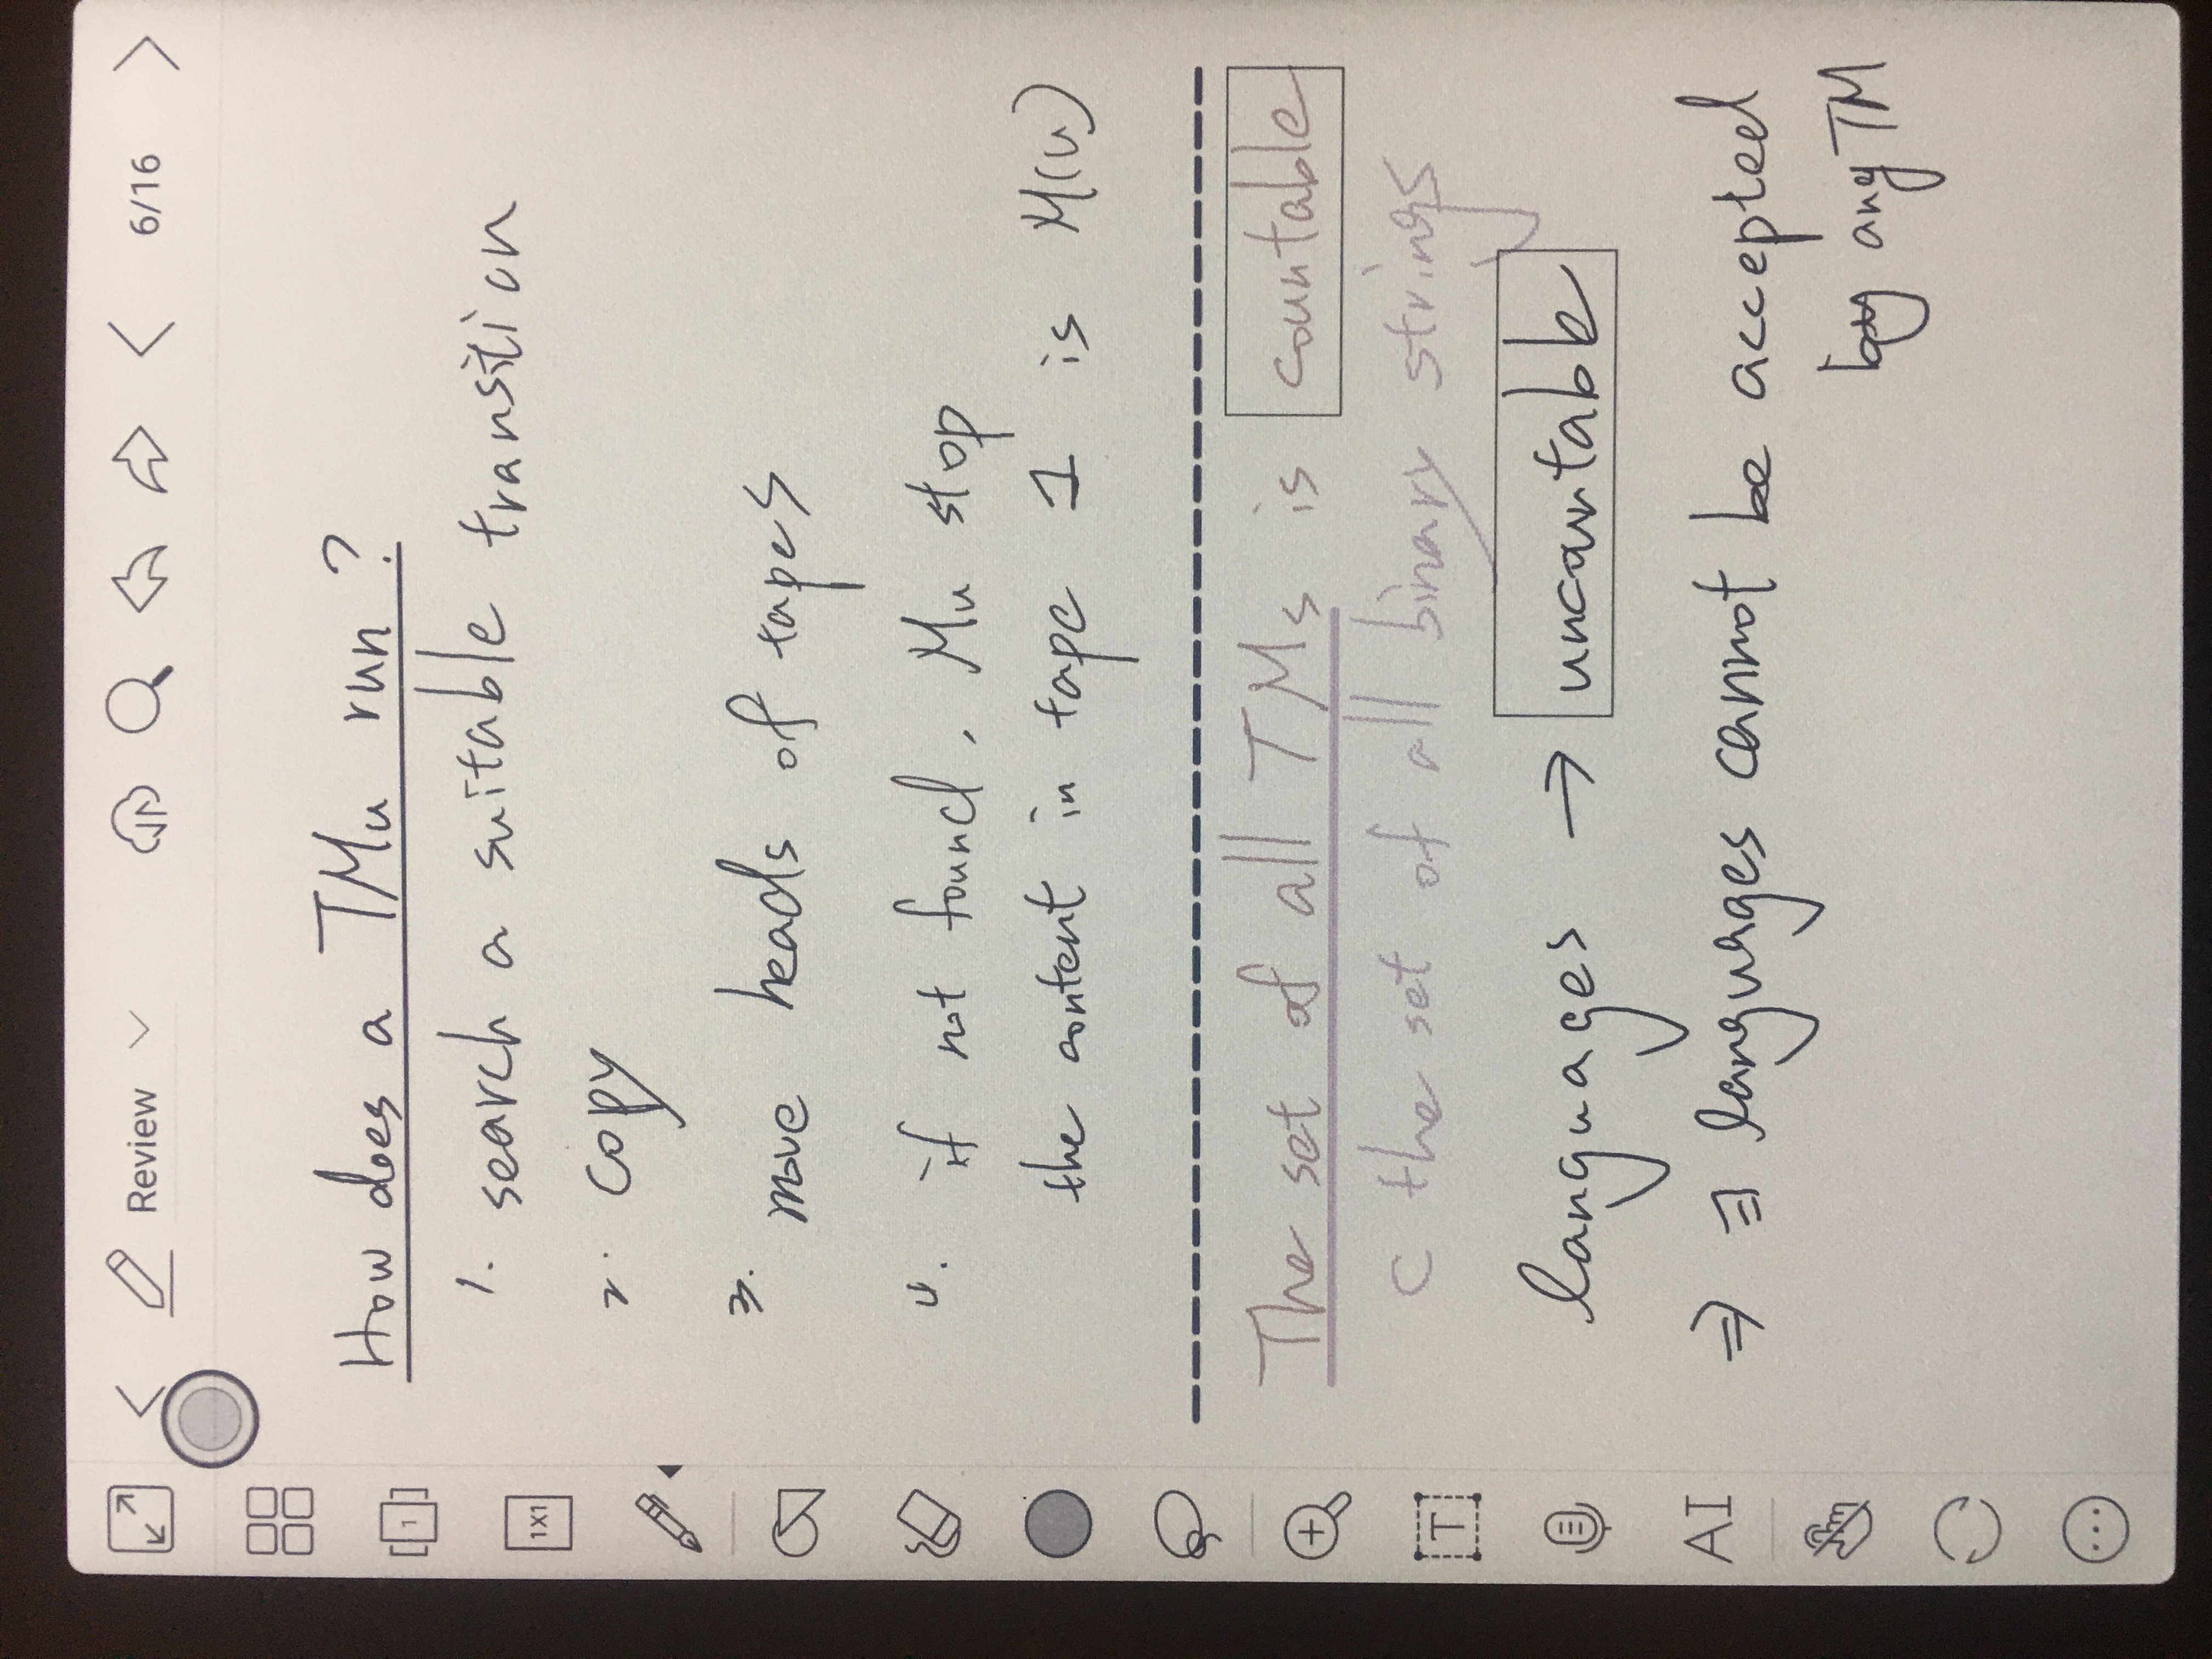 Review
6/16
1
1X1
T
AI
How does a TMu run ?
1. search a suitable transition
2. copy
3. move heads of tapes
4. if not found. Mu stop
the content in tape 1 is M(u)
The set of all TMs is countable
⊂ the set of all binary strings
languages → uncountable
⇒ ∃ languages cannot be accepted
by any TM